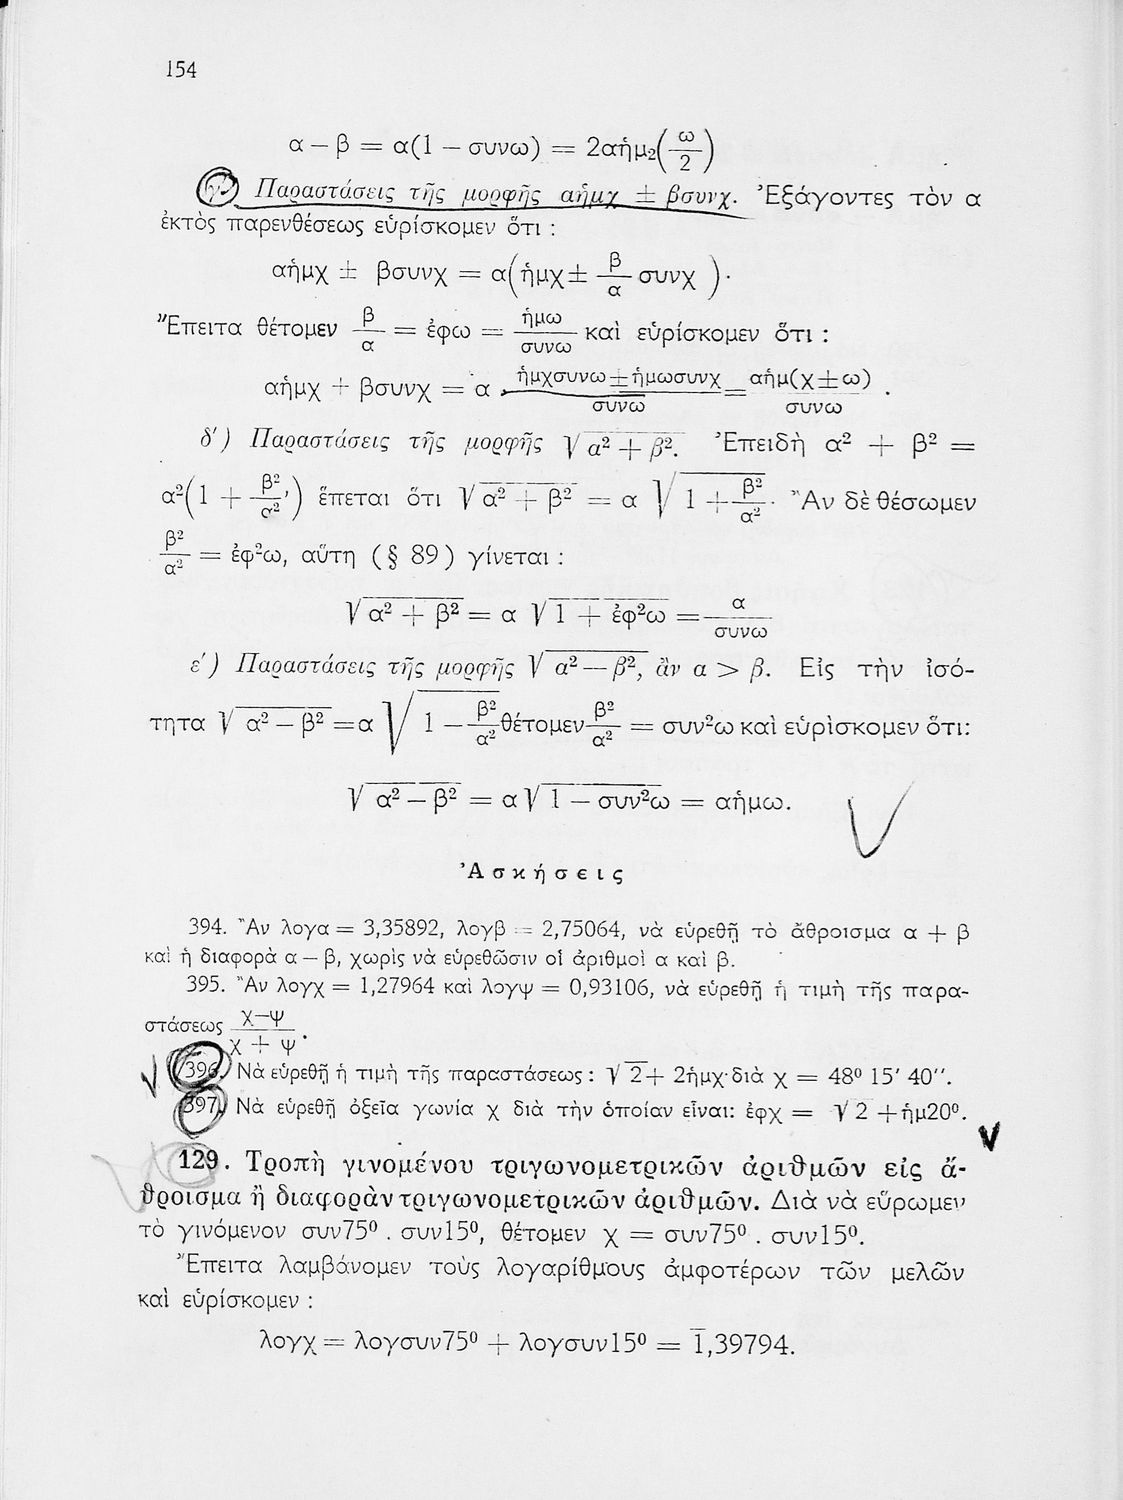 154
α – β = α(1 – συνω) = 2αἡμ₂(ω/2)
γ′) Παραστάσεις τῆς μορφῆς αἡμχ ± βσυνχ. Ἐξάγοντες τὸν α
ἐκτὸς παρενθέσεως εὑρίσκομεν ὅτι :
αἡμχ ± βσυνχ = α(ἡμχ ± β/α συνχ).
Ἔπειτα θέτομεν β/α = ἐφω = ἡμω/συνω καὶ εὑρίσκομεν ὅτι :
αἡμχ + βσυνχ = α ἡμχσυνω ± ἡμωσυνχ/συνω = αἡμ(χ ± ω)/συνω .
δ′) Παραστάσεις τῆς μορφῆς √α² + β². Ἐπειδὴ α² + β² =
α²(1 + β²/α²) ἕπεται ὅτι √α² + β² = α √1 + β²/α². Ἂν δὲ θέσωμεν
β²/α² = ἐφ²ω, αὕτη (§ 89) γίνεται :
√α² + β² = α √1 + ἐφ²ω = α/συνω
ε′) Παραστάσεις τῆς μορφῆς √α² — β², ἂν α > β. Εἰς τὴν ἰσό-
τητα √α² – β² = α √1 – β²/α² θέτομεν β²/α² = συν²ω καὶ εὑρὶσκομεν ὅτι:
√α² – β² = α√1 – συν²ω = αἡμω.
Ἀσκήσεις
394. Ἂν λογα = 3,35892, λογβ = 2,75064, νὰ εὑρεθῇ τὸ ἄθροισμα α + β
καὶ ἡ διαφορὰ α – β, χωρὶς νὰ εὑρεθῶσιν οἱ ἀριθμοὶ α καὶ β.
395. Ἂν λογχ = 1,27964 καὶ λογψ = 0,93106, νὰ εὑρεθῇ ἡ τιμὴ τῆς παρα-
στάσεως χ–ψ/χ + ψ.
396. Νὰ εὑρεθῇ ἡ τιμὴ τῆς παραστάσεως : √2 + 2ἡμχ· διὰ χ = 48⁰ 15′ 40″.
397. Νὰ εὑρεθῇ ὀξεῖα γωνία χ διὰ τὴν ὁποίαν εἶναι: ἐφχ = √2 + ἡμ20⁰.
129. Τροπὴ γινομένου τριγωνομετρικῶν ἀριθμῶν εἰς ἄ-
θροισμα ἢ διαφορὰν τριγωνομετρικῶν ἀριθμῶν. Διὰ νὰ εὕρωμεν
τὸ γινόμενον συν75⁰ . συν15⁰, θέτομεν χ = συν75⁰ . συν15⁰.
Ἔπειτα λαμβάνομεν τοὺς λογαρίθμους ἀμφοτέρων τῶν μελῶν
καὶ εὑρίσκομεν :
λογχ = λογσυν75⁰ + λογσυν15⁰ = 1̅,39794.